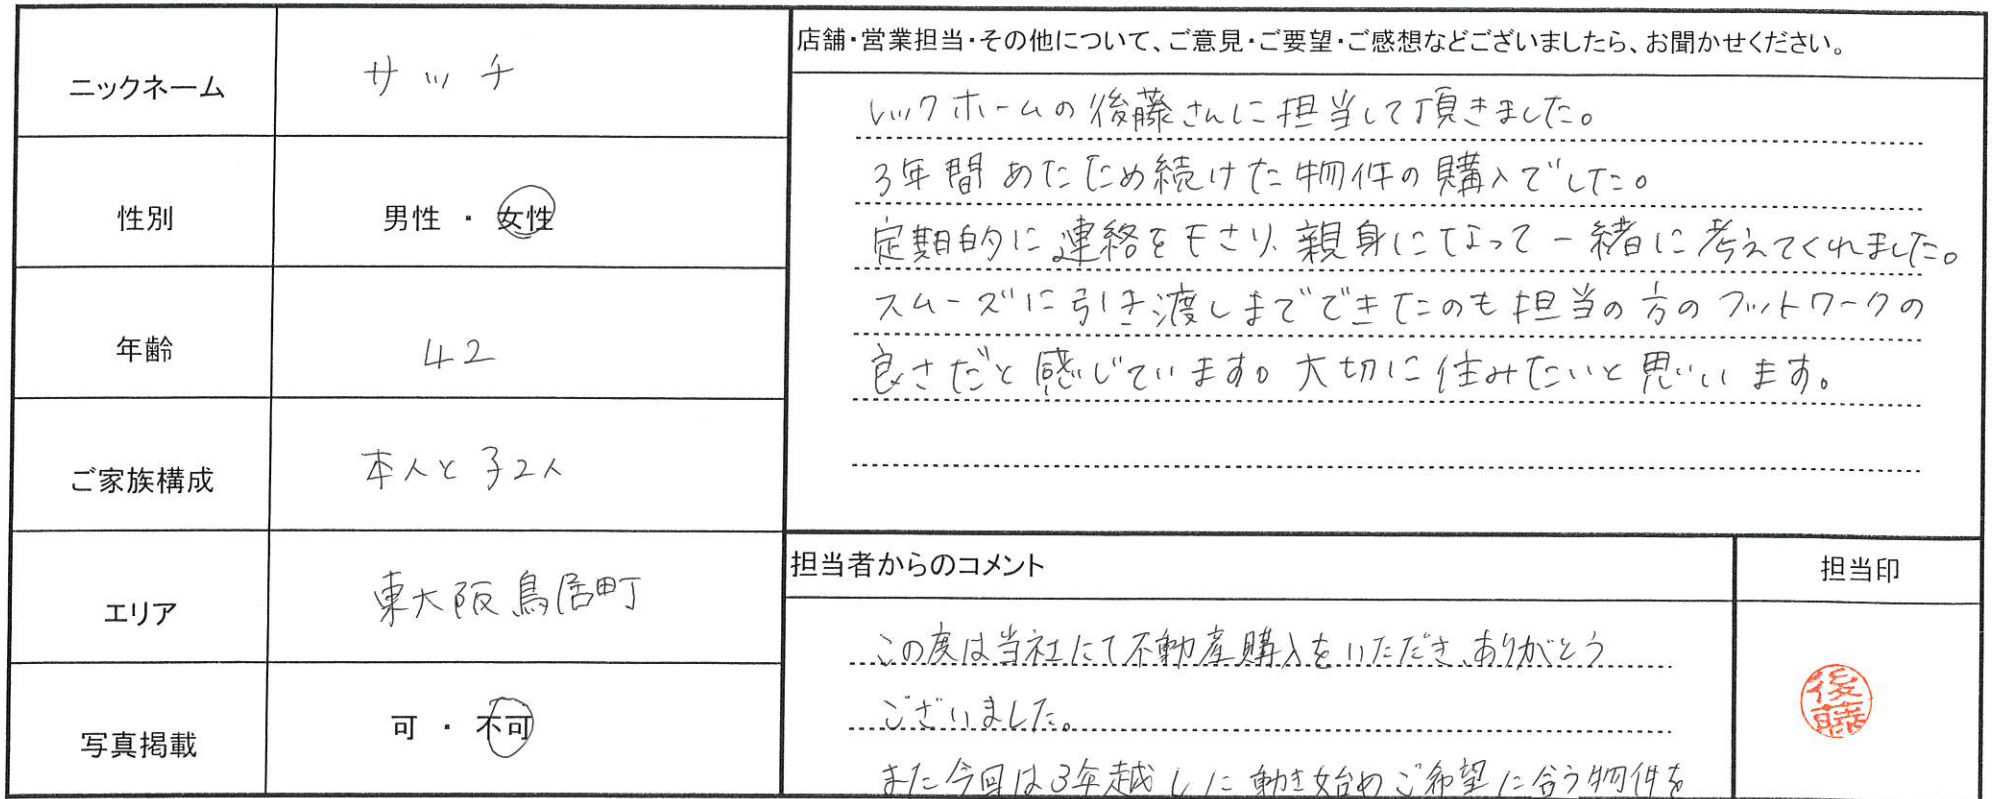 ニックネーム
サッチ
性別
男性 ・ 女性
年齢
42
ご家族構成
本人と子2人
エリア
東大阪鳥居町
写真掲載
可 ・ 不可
店舗・営業担当・その他について、ご意見・ご要望・ご感想などございましたら、お聞かせください。
レックホームの後藤さんに担当して頂きました。
3年間あたため続けた物件の購入でした。
定期的に連絡を下さり、親身になって一緒に考えてくれました。
スムーズに引き渡しまでできたのも担当の方のフットワークの
良さだと感じています。大切に住みたいと思います。
担当者からのコメント
この度は当社にて不動産購入をいただき、ありがとう
ございました。
また今回は3年越しに動き始めご希望に合う物件を
担当印
後藤